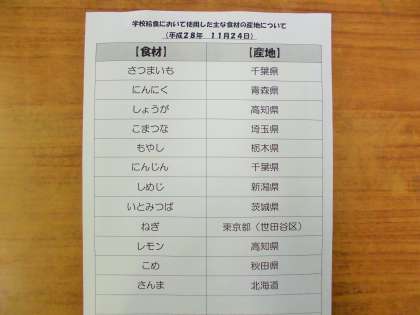 学校給食において使用した主な食材の産地について
（平成28年　11月24日）
【食材】　【産地】
さつまいも　千葉県
にんにく　青森県
しょうが　高知県
こまつな　埼玉県
もやし　栃木県
にんじん　千葉県
しめじ　新潟県
いとみつば　茨城県
ねぎ　東京都（世田谷区）
レモン　高知県
こめ　秋田県
さんま　北海道